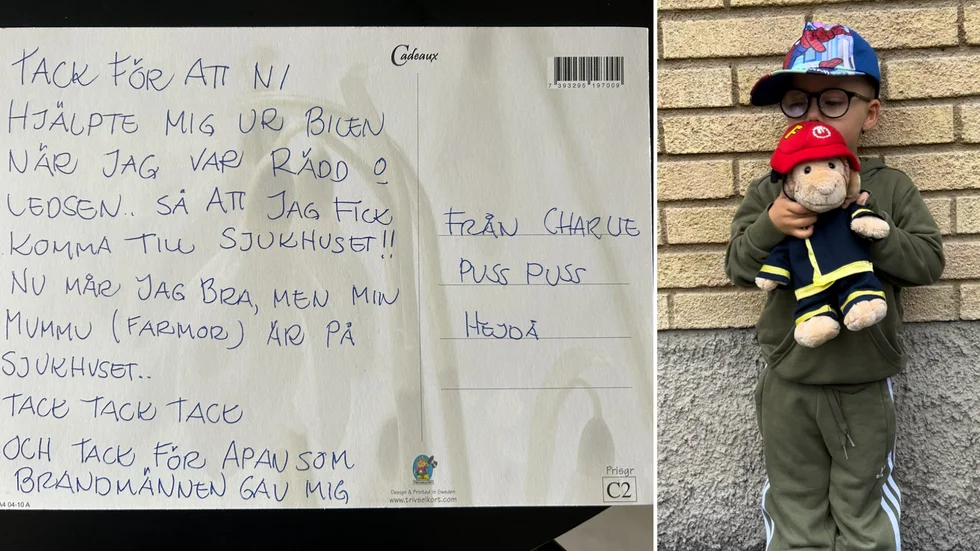 TACK FÖR ATT NI
HJÄLPTE MIG UR BILEN
NÄR JAG VAR RÄDD O
LEDSEN.. SÅ ATT JAG FICK
KOMMA TILL SJUKHUSET!!
NU MÅR JAG BRA, MEN MIN
MUMMU (FARMOR) ÄR PÅ
SJUKHUSET..
TACK TACK TACK
OCH TACK FÖR APAN SOM
BRANDMÄNNEN GAV MIG
A4 04-10 A
Cadeaux
7 393295 197009
FRÅN CHARLIE
PUSS PUSS
HEJDÅ
Design & Printed in Sweden
www.trivselkort.com
Prisgr
C2
F